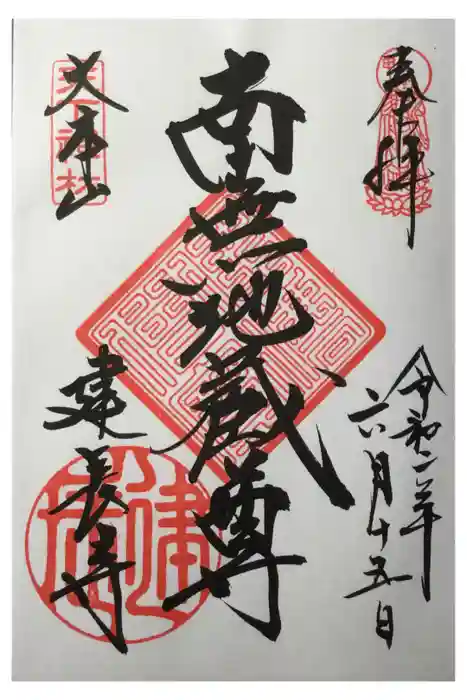 奉拝
令和二年
六月十五日
南無地蔵尊
大本山
天下禅林
建長寺